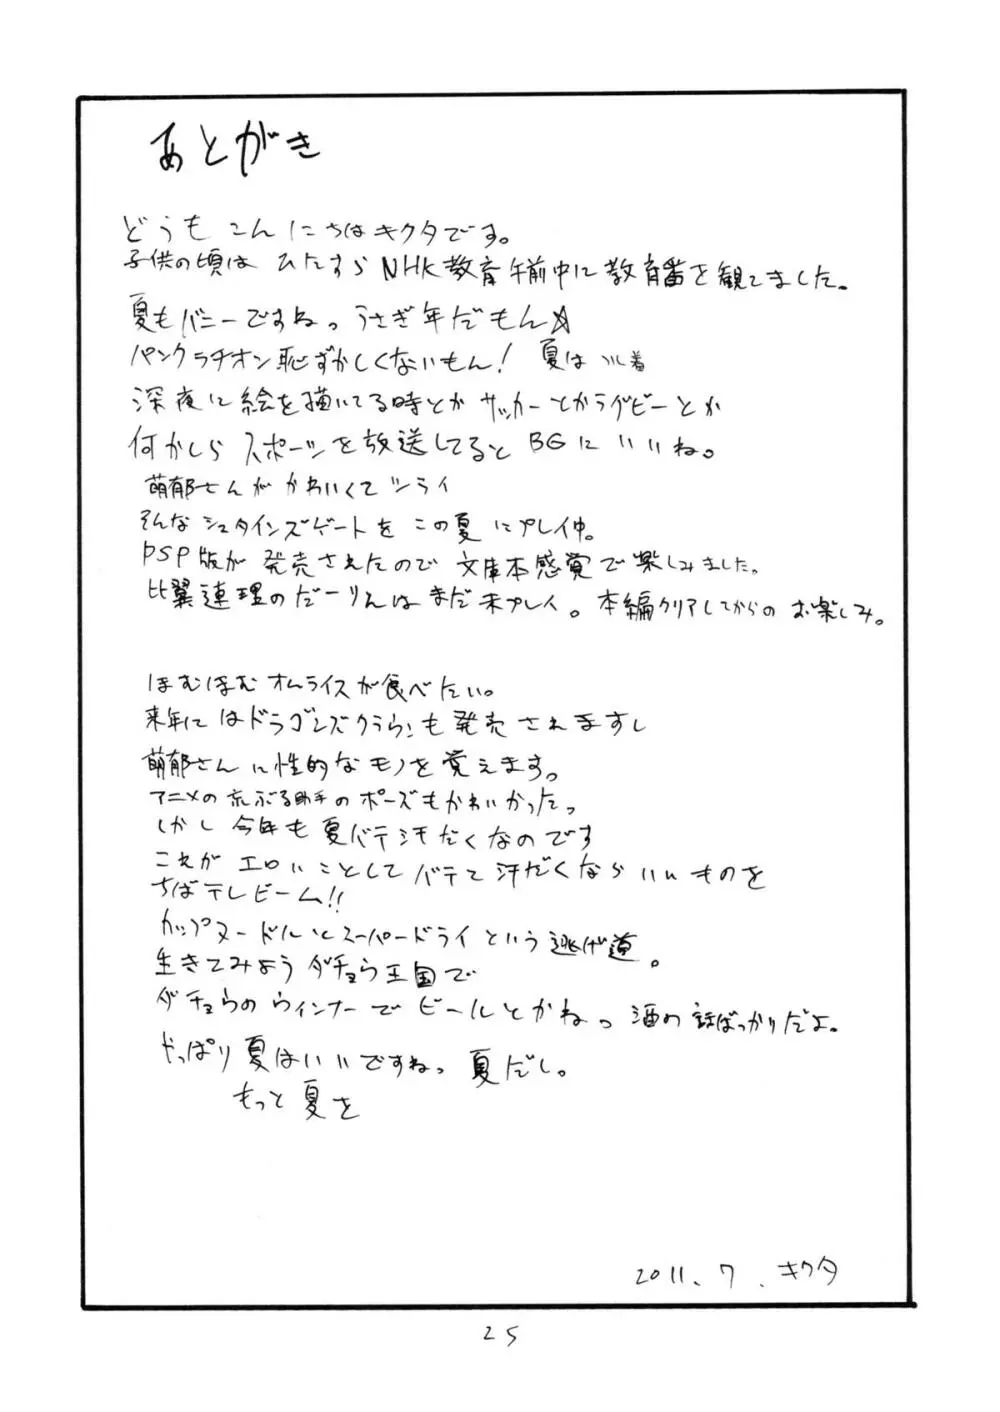 あとがき
どうもこんにちはキクタです。
子供の頃はひたすらNHK教育午前中に教育番を観てました。
夏もバニーですねっうさぎ年だもん☆
パンクラチオン恥ずかしくないもん! 夏は 着
深夜に絵を描いてる時とかサッカーとかラグビーとか
何かしらスポーツを放送してるとBGにいいね。
萌郁さんがかわいくてツライ
そんなシュタインズゲートをこの夏にプレイ中。
PSP版が発売されたので文庫本感覚で楽しみました。
比翼連理のだーりんはまだ未プレイ。本編クリアしてからのお楽しみ。
ほむほむオムライスが食べたい。
来年にはドラゴンズクラウンも発売されますし
萌郁さんに性的なモノを覚えます。
アニメの荒ぶる助手のポーズもかわいかったっ
しかし今年も夏バテ汗だくなのです
これがエロいことしてバテて汗だくならいいものを
ちばテレビーム!!
カップヌードルとスーパードライという逃げ道。
生きてみようダチョウ王国で
ダチョウのウィンナーでビールとかねっ 酒の話ばっかりだよ。
やっぱり夏はいいですねっ夏だし。
もっと夏を
2011.7.キクタ
25